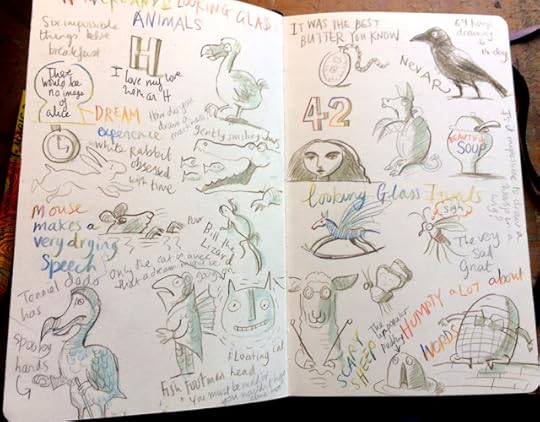 WONDERLAND & LOOKING GLASS
ANIMALS
Six impossible
things before
breakfast
H
I love my love
with an H
There
would be
no image
of
alice
DREAM
experience
How do you
draw a
gently smiling jaws
White Rabbit
obsessed
with time
Mouse
makes a
very drying
Speech
Poor
Bill the
Lizard
Only the cat is aware
that a dream
Tenniel dodo
has
spooky
hands
Floating cat
head.
Fish Footman
"You must be mad or
you wouldn't have
come here"
IT WAS THE BEST
BUTTER YOU KNOW
NEVAR
69 hours
drawing
in
14 days
42
BEAUTIFUL
SOUP
It's
impossible to
Looking Glass Insects
sigh
The very
Sad
Gnat
SCARY
SHEEP
The
pudding
HUMPTY a LOT about
WORDS